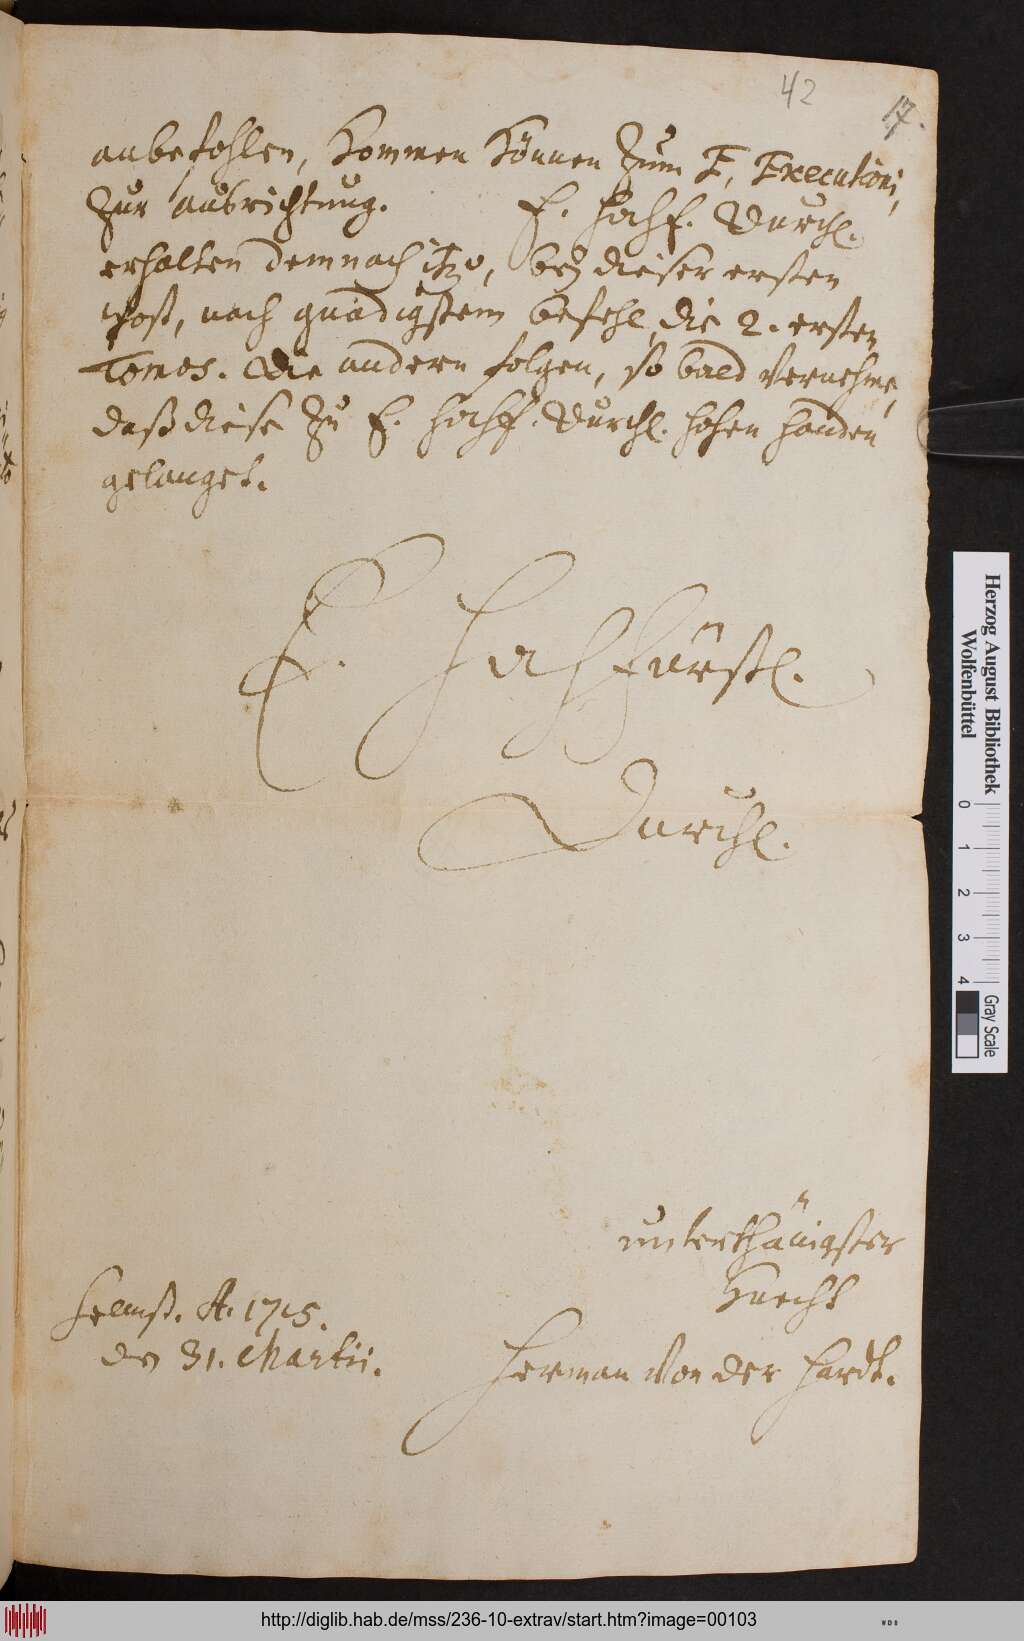 42
17.
anbefohlen, kommen können zum E, Executioni,
zur ausrichtung. E. Hochf. Durchl.
erhalten demnach itzo, beÿ dieser ersten
post, nach gnädigstem befehl, die 2. ersten
Tomos. Die andern folgen, so bald vernehme,
daß diese zu E. Hochf. Durchl. hohen handen
gelanget.
E. HochFürstl.
Durchl.
unterthänigster
Knecht
Helmst. A. 1715.
den 31. Martii.
Herman von der Hardt.
Herzog August Bibliothek
Wolfenbüttel
0 1 2 3 4
Gray Scale
http://diglib.hab.de/mss/236-10-extrav/start.htm?image=00103